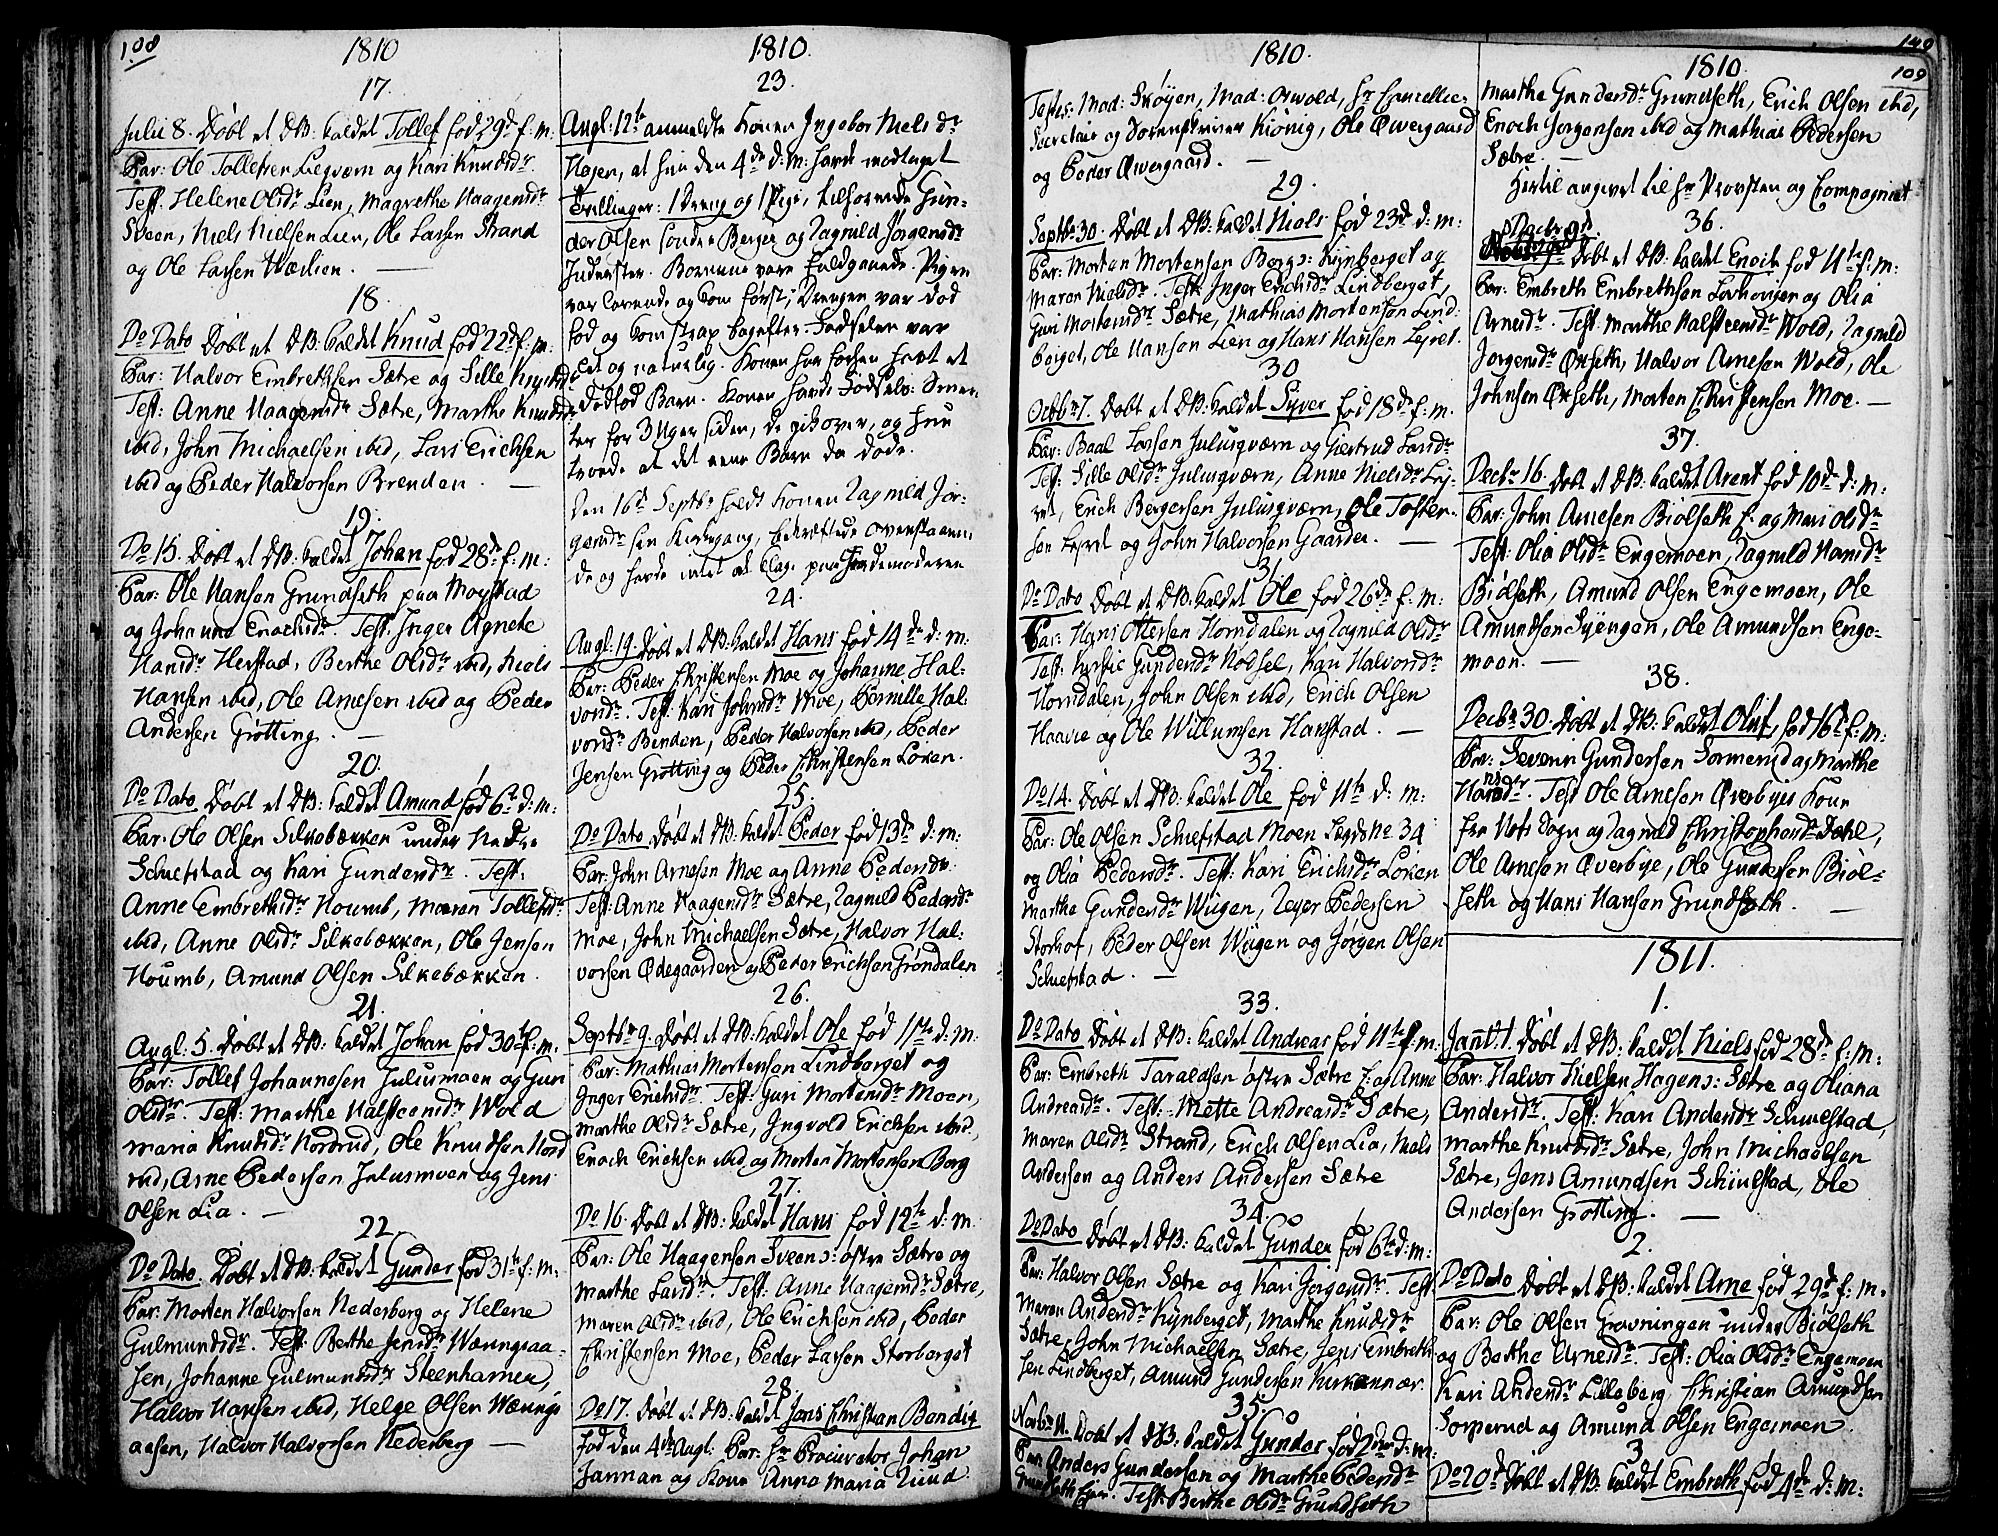 108
1810
17.
Julii 8. Døbt et DB: kaldet Tollef fød 29d f: m:
Par: Ole Tollefsen Liegværn og Kari Knudsdr.
Test: Helene Olsdr Lien, Magrethe Haagensdr
Sveen, Niels Nielsen Lien, Ole Larsen Strand
og Ole Larsen
18.
Do Dato Døbt et DB: kaldet Knud fød 22d f: m:
Par: Halvor Embrethsen Sætre og Sille Knudsdr
Test: Anne Haagensdr Sætre, Marthe Knudsdr
ibid, John Michaelsen ibid, Lars Erichsen
ibid og Peder Halvorsen Brenden.
19.
Do 15. Døbt et DB: kaldet Johan fød 28d f: m:
Par: Ole Hansen Grundseth paa Moystad
og Johanne Enochsdr. Test: Inger Agnete
Hansdr Herstad, Berthe Olsdr ibid, Niels
Hansen ibid, Ole Arnesen ibid og Peder
Andersen Grøtting.
20.
Do Dato Døbt et DB: kaldet Amund fød 6te d: m:
Par: Ole Olsen Silkebækken under Nedre
Schiefstad og Kari Gundersdr. Test:
Anne Embrethsdr Houmb, Maren Tollefsdr
ibid, Anne Olsdr Silkebækken, Ole Jensen
Houmb, Amund Olsen Silkebækken.
21.
Augl: 5. Døbt et DB: kaldet Johan fød 30te f: m.
Par: Tollef Johannesen Julusmoen og Guri
Olsdr. Test: Marthe Halsteensdr Wold
Maria Knudsdr Nordrud, Ole Knudsen Nord
rud, Arne Pedersen Julusmoen og Jens
Olsen Lia.
22.
Do Dato. Døbt et DB: kaldet Gunder fød 31te f: m:
Par: Morten Halvorsen Nederberg og Helene
Gulmundsdr. Test: Berthe Jensdr Wæringsaa-
sen, Johanne Gulmundsdr Steenhamer,
Halvor Hansen ibid, Helge Olsen Wærings
aasen, Halvor Halvorsen Nederberg
1810.
23.
Augl: 12te anmeldte Konen Ingebor Nielsdr
Høyen, at hun den 4de d: m: havde modtaget
Tvillinger: 1 Dreng og 1 Pige, tilhørende Gun-
der Olsen Søndre Berger og Ragnild Jørgensdr
Inderster. Børnene vare fuldgaaede. Pigen
var levende og kom først; Drengen var død
fød og kom strax bagefter. Fødselen var
let og naturlig. Konen har forhen født et
dødfød Barn. Konen havde Fødsels: Smer-
ter for 3 Uger siden, de gik over, og hun
troede at det eene Barn da døde.
Den 16d Septbr holdt Konen Ragnild Jør-
gensdr sin Kirkegang, bekræftede ovenstaaen
de og havde intet at klage paa Jordemoderen
24.
Augl: 19. Døbt et DB: kaldet Hans fød 14de d: m:
Par: Peder Christensen Moe og Johanne Hal-
vorsdr. Test: Kari Johnsdr Moe, Pernille Hal-
vorsdr Benden, Peder Halvorsen ibid, Peder
Jensen Grøtting og Peder Christensen Løken.
25.
Do Dato Døbt et DB: kaldet Peder fød 13de d: m:
Par: John Arnesen Moe og Anne Pedersdr.
Test: Anne Haagensdr Sætre, Ragnild Pedersdr
Moe, John Michaelsen Sætre, Halvor Hal-
vorsen Ødegaarden og Peder Erichsen Grøndalen
26.
Septbr 9. Døbt et DB: kaldet Ole fød 1ste d: m:
Par: Mathias Mortensen Lindberget og
Inger Erichsdr. Test: Guri Mortensdr Moen,
Marthe Olsdr Sætre, Ingvold Erichsen ibid,
Enoch Erichsen ibid og Morten Mortensen Borg
27.
Do 16. Døbt et DB: kaldet Hans fød 12te d: m:
Par: Ole Haagensen Sveens: østre Sætre og
Marthe Larsdr. Test: Anne Haagensdr Sætre,
Maren Olsdr ibid, Ole Erichsen ibid, Peder
Christensen Moe, Peder Larsen Storberget
28.
Do 17. Døbt et DB: kaldet Jens Christian Bendig
fød den 4de Augl: Par: Hr Procurator Johan
Janman og Kone Anna Maria Lund
1810.
Testes: Mad: Skøyen, Mad: Oswold, Hr Cancellie-
Secretair og Sorenskriver Kiønig, Ole Øwergaard
og Peder Øwergaard.
29.
Septbr 30. Døbt et DB: kaldet Niels fød 23d d: m:
Par: Morten Mortensen Borgs: Kynberget og
Maren Nielsdr. Test: Inger Erichsdr Lindberget,
Guri Mortensdr Sætre, Mathias Mortensen Lind-
berget, Ole Hansen Lien og Hans Hansen Lejret.
30
Octbr 7. Døbt et DB: kaldet Syver fød 18de f: m.
Par: Baal Larsen Julusqværn og Giertrud Larsdr
Test: Sille Olsdr Julusqværn, Anne Nielsdr Lej-
ret, Erich Bergersen Julusqværn, Ole Tosten-
sen Lejret og John Halvorsen Gaarder.
31.
Do Dato Døbt et DB: kaldet Ole fød 26de f: m:
Par: Hans Ottersen Horndalen og Ragnild Olsdr
Test: Kirstie Gundersdr Nødsel, Kari Halvorsdr
Horndalen, John Olsen ibid, Erich Olsen
Haavie og Ole Willumsen Hanstad.
32.
Do 14. Døbt et DB: kaldet Ole fød 11te d: m:
Par: Ole Olsen Schiefstad Moen No 34
og Olia Pedersdr. Test: Kari Erichsdr Løken
Marthe Gundersdr Wiigen, Reyer Pedersen
Storhof, Peder Olsen Wiigen og Jørgen Olsen
Schiefstad.
33.
Do Dato Døbt et DB: kaldet Andreas fød 11te f: m:
Par: Embreth Taraldsen østre Sætre og Anne
Andreasdr. Test: Mette Andreasdr Sætre,
Maren Olsdr Strand, Erich Olsen Lia, Niels
Andersen og Anders Andersen Sætre
34.
Do Dato Døbt et DB: kaldet Gunder fød 6te d: m:
Par: Halvor Olsen Sætre og Kari Jørgensdr. Test:
Maren Andersdr Kynberget, Marthe Knudsdr
Sætre, John Michaelsen Sætre, Jens Embreth-
sen Lindberget, Amund Gundersen Kirkenær.
35.
Novbr 11. Døbt et DB: kaldet Gunder fød 2den d: m:
Par: Anders Gundersen og Marthe Pedersdr
Grundseth Ejer. Test: Berthe Olsdr Grundseth
149
109
1810.
Marthe Gundersdr Grundseth, Erich Olsen ibid,
Enoch Jørgensen ibid og Mathias Pedersen
Sætre.
Hertil angivet til Hr Provsten og Compagniet
36.
Decbr 9d Døbt et DB: kaldet Enoch fød 11te f: m:
Par: Embreth Embrethsen Løvhougen og Olia
Arnesdr. Test: Marthe Halsteensdr Wold, Ragnild
Jørgensdr Øxseth, Halvor Arnesen Wold, Ole
Johnsen Øxseth, Morten Christensen Moe.
37.
Decbr 16. Døbt et DB: kaldet Arent fød 10de d: m:
Par: John Arnesen Biølseth og Mari Olsdr
Test: Olia Olsdr Engemoen, Ragnild Hansdr
Biølseth, Amund Olsen Engemoen, Ole
Amundsen Syengen, Ole Amundsen Enge-
moen.
38.
Decbr 30. Døbt et DB: kaldet Oluf, fød 16te f: m:
Par: Severin Gundersen Sormerud og Marthe
Hansdr. Test: Ole Arnesen Øverbyes Kone
fra Uets Sogn og Ragnild Christophersdr Dæhl,
Ole Arnesen Øverbye, Ole Gundersen Biøl-
seth og Hans Hansen Grundseth.
1811.
1.
Januar 1. Døbt et DB: kaldet Niels fød 28de f: m:
Par: Halvor Nielsen Hagens: Sætre og Oliana
Andersdr. Test: Kari Andersdr Schiulstad,
Marthe Knudsdr Sætre, John Michaelsen
Sætre, Jens Amundsen Schiulstad, Ole
Andersen Grøtting.
2.
Do Dato Døbt et DB: kaldet Arne fød 29d f: m.
Par: Ole Olsen Gravningen under Biølseth
og Berthe Arnesdr. Test: Olia Olsdr Engemoen
Kari Andersdr Lilleberg, Christian Amundsen
Sorperud og Amund Olsen Engemoen.
3
Do 20d Døbt et DB: kaldet Embreth fød 4de d: m: